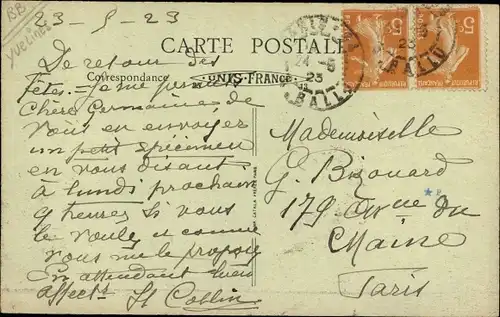 23-5-23
BB
Yvelines
CARTE POSTALE
Correspondance
UNIS-FRANCE
24-5
23
BALLU
5c
5c
De retour des
fêtes - je me permets
Chère Germaine de
vous en envoyer
un petit spécimen
en vous disant
à lundi prochain
9 heures si vous
le voulez et comme
vous me le proposez
En attendant bien
affect.
Mademoiselle
G. Bizouard
179 Avenue du
Maine
Paris